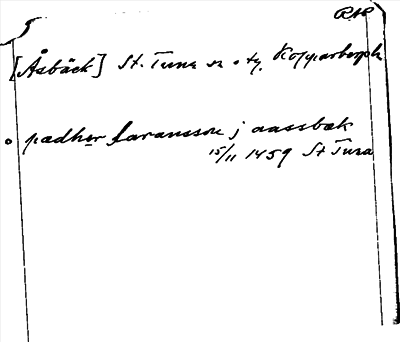 5
[Åsbäck] St. Tuna sn o tg. Kopparbergs l.
o pædher laransson j aassbæk
15/11 1459 St Tuna